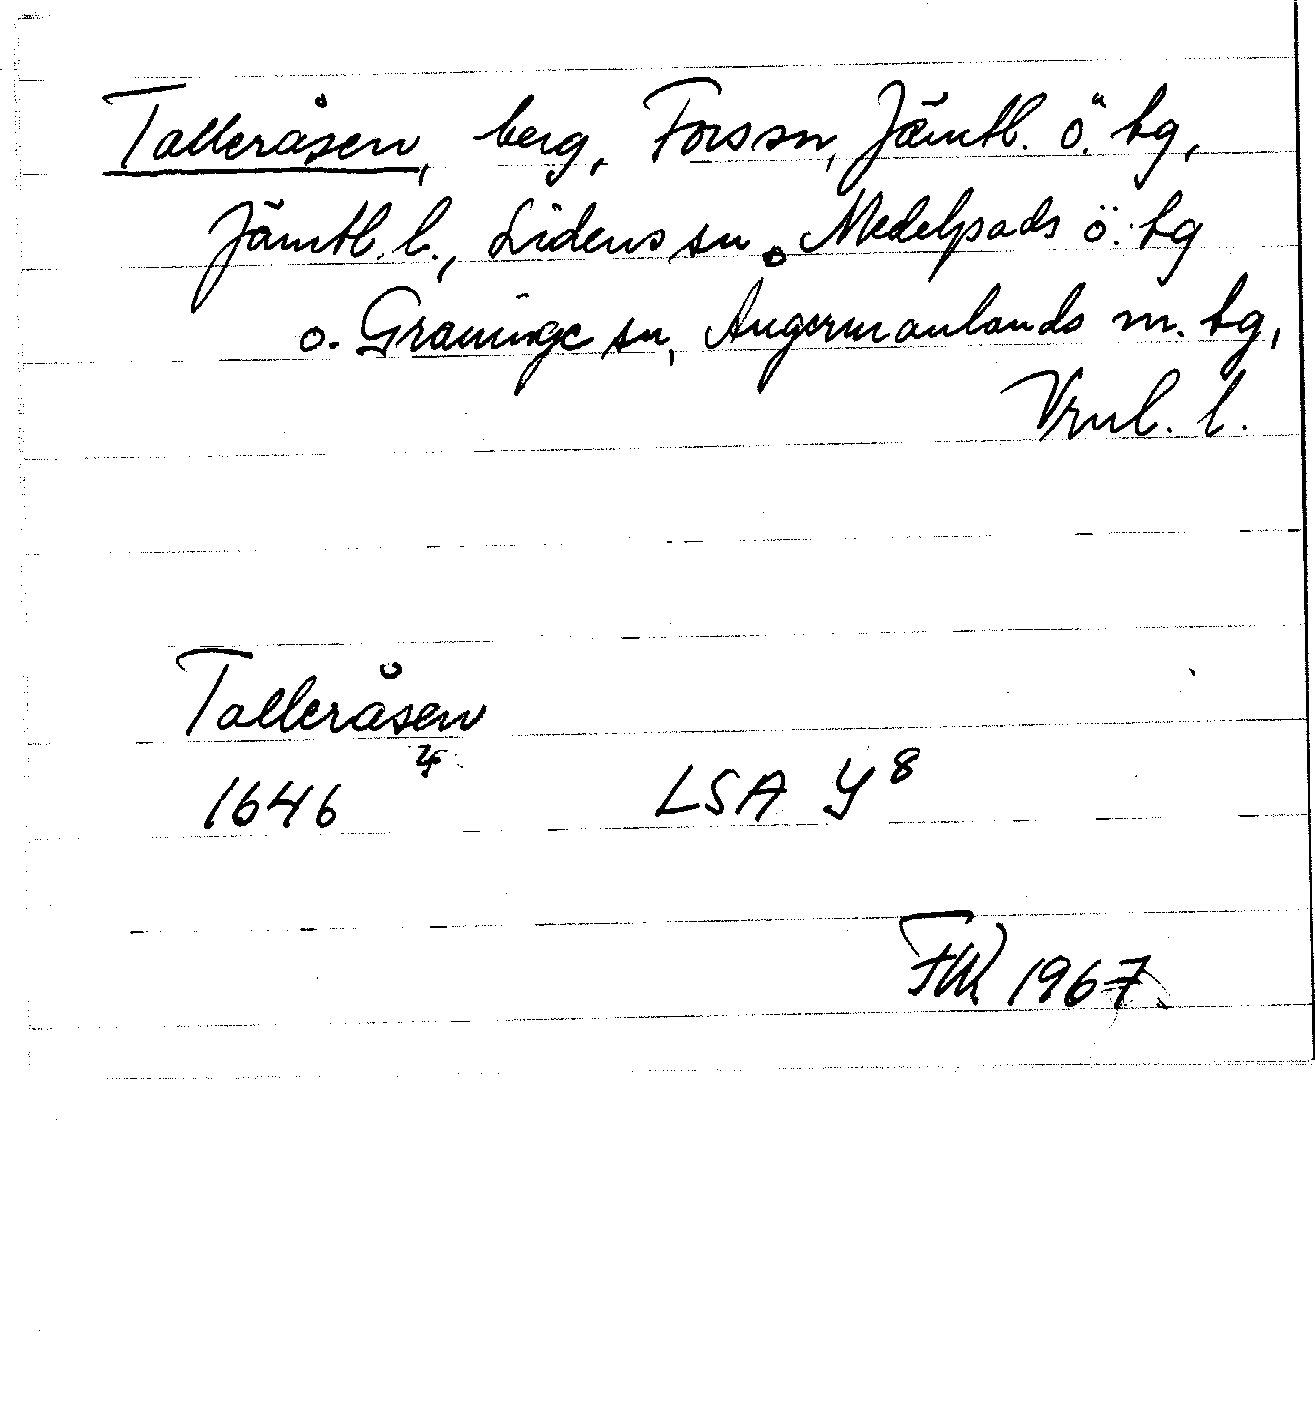 Talleråsen, berg, Fors sn, Jämtl. ö. tg,
Jämtl. l., Lidens sn, Medelpads ö. tg
o. Graninge sn, Ångermanlands m. tg,
Vrnl. l.
Talleråsen
1646 4 LSA Y 8
1967